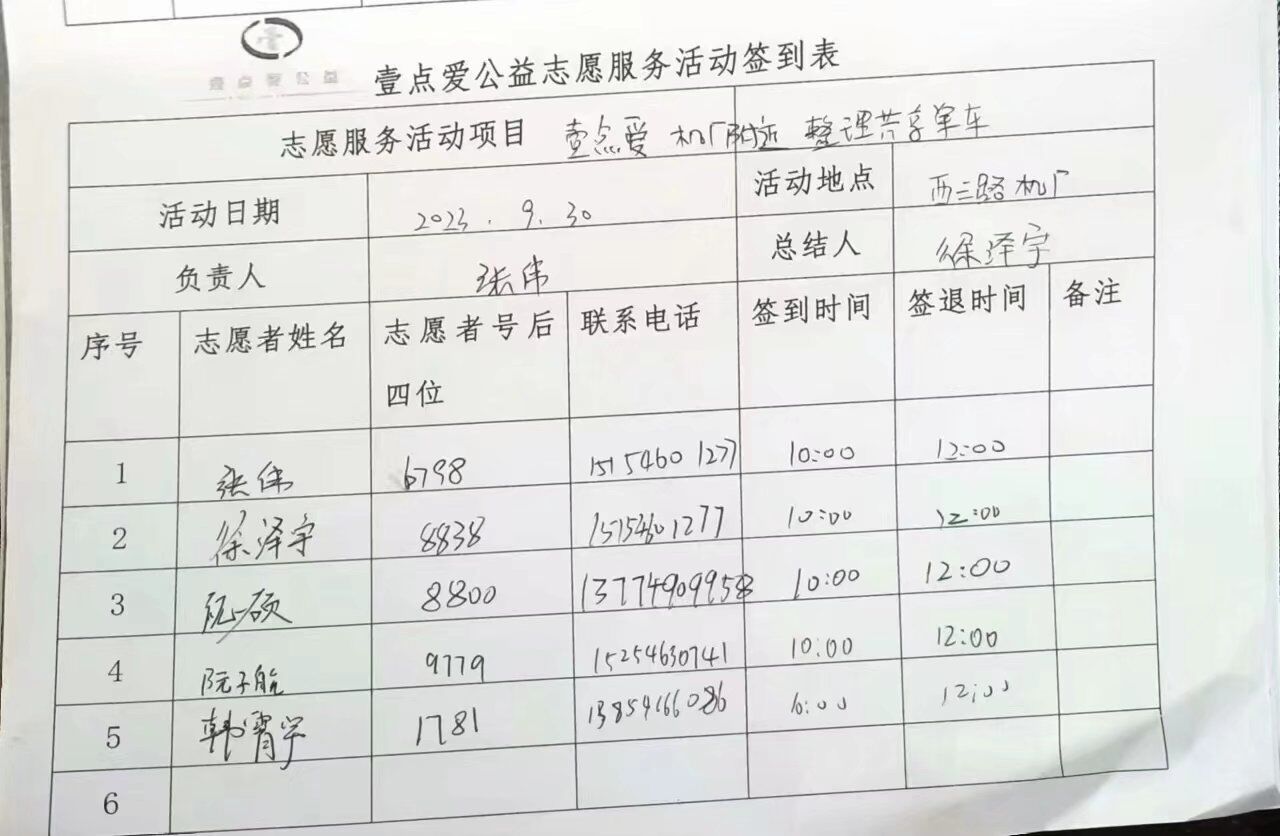 壹点爱公益
壹点爱公益志愿服务活动签到表
志愿服务活动项目 壹点爱 机厂附近 整理共享单车
活动日期 2023.9.30 活动地点 西三路机厂
负责人 张伟 总结人 徐泽宇
序号 志愿者姓名 志愿者号后四位 联系电话 签到时间 签退时间 备注
1 张伟 6798 15154601277 10:00 12:00
2 徐泽宇 8838 15154601277 10:00 12:00
3 8800 13774909958 10:00 12:00
4 阮子航 9779 15254630741 10:00 12:00
5 韩霄学 1781 13854166086 10:00 12:00
6